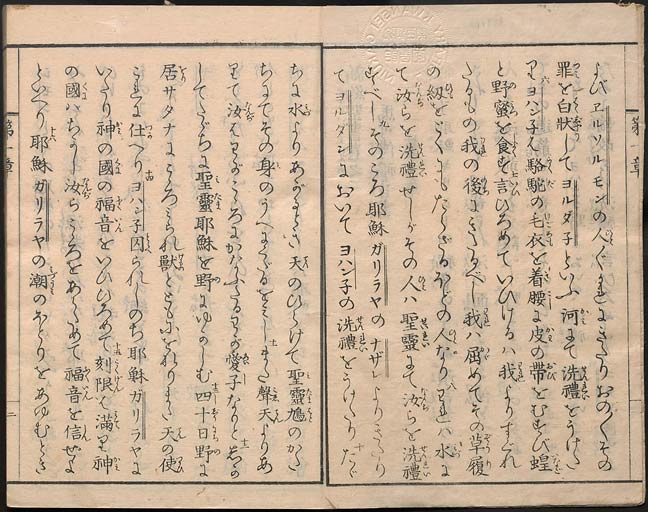 よびヱルソルモンの人ぐ〳〵きたりおの〳〵その
罪を白状してヨルダ子といふ河にて洗禮をうけた
りヨハン子ハ駱駝の毛衣を着腰に皮の帶をむすび蝗
と野蜜を食ひ言ひろめていひけるハ我よりすぐれ
たるもの我の後にきたるべし我ハ屈めてその草履
の紐をとくにもたらざるほどの人なり我ハ水に
て汝らを洗禮せしがその人ハ聖靈にて汝らを洗禮
すべしそのころ耶穌ガリラヤのナザレよりきたり
てヨルダンにおいてヨハン子の洗禮をうけたりたゞ
ちに水よりあがるとき天のひらけて聖靈鳩のかた
ちにてその身のうへにくだるをみしまた聲天よりあ
りて汝ハわがこゝろにかなふたるわが愛子なり
してたゞちに聖靈耶穌を野にゆかしむ四十日野に
居サタナにこゝろみられ獸とともにをれりまた天の使
これに仕へりヨハン子囚られしのち耶穌ガリラヤに
いたり神の國の福音をいひひろめて刻限ハ満り神
の國ハちかし汝らこゝろをあらためて福音を信ぜよ
といへり耶穌ガリラヤの潮のほとりをあゆむとき
第一章
第一章